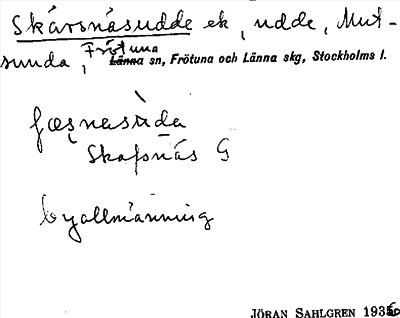 Skärsnäsudde ek, udde, Mut-
sunda, Frötuna
Länna sn, Frötuna och Länna skg, Stockholms l.
Skafsnäs G
byallmänning
JÖRAN SAHLGREN 1935